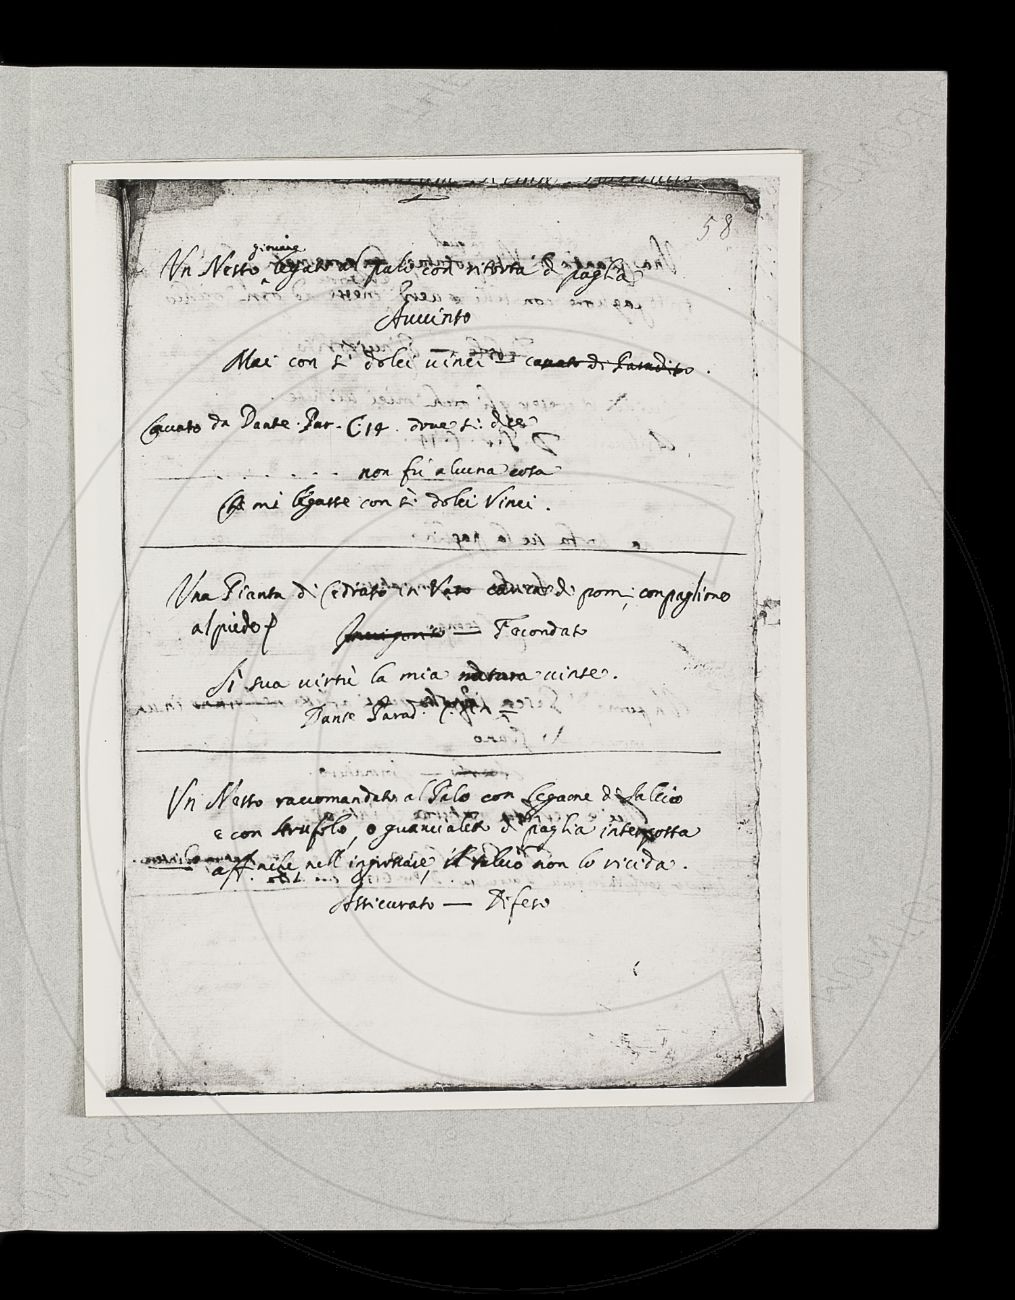 58
giovane
Un Nesto legato al palo con ritorta di paglia
Avvinto
Mai con sì dolci vinci — cavato di Paradiso.
Cavato da Dante. Par. C. 14. dove si dice
. . . . non fù alcuna cosa
Che mi legasse con sì dolci Vinci.
Una Pianta di Cedrato in Vaso carica di pomi, con paglione
al piede
— Fecondato
Sì sua virtù la mia natura vinse.
Dante Parad. C.
Un Nesto raccomandato al Palo con Legame di Salcio
e con strufolo, o guancialetto di paglia interposta
affinche nell'ingrossare, il salcio non lo ricida.
Assicurato — Difeso